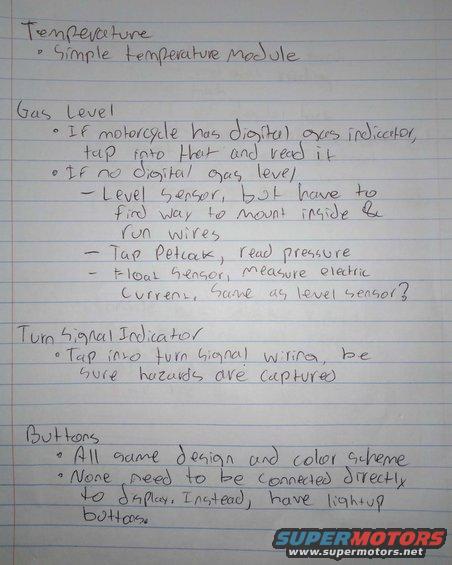 Temperature
• Simple temperature module
Gas Level
• If motorcycle has digital gas indicator,
tap into that and read it
• If no digital gas level,
- Level sensor, but have to
find way to mount inside &
run wires
- Tap Petcok, read pressure
- Float sensor, measure electric
current, same as level sensor?
Turn Signal Indicator
• Tap into turn signal wiring, be
sure hazards are captured
Buttons
• All same design and color scheme
• None need to be connected directly
to display. Instead, have lightup
buttons.
SUPERMOTORS
www.supermotors.net